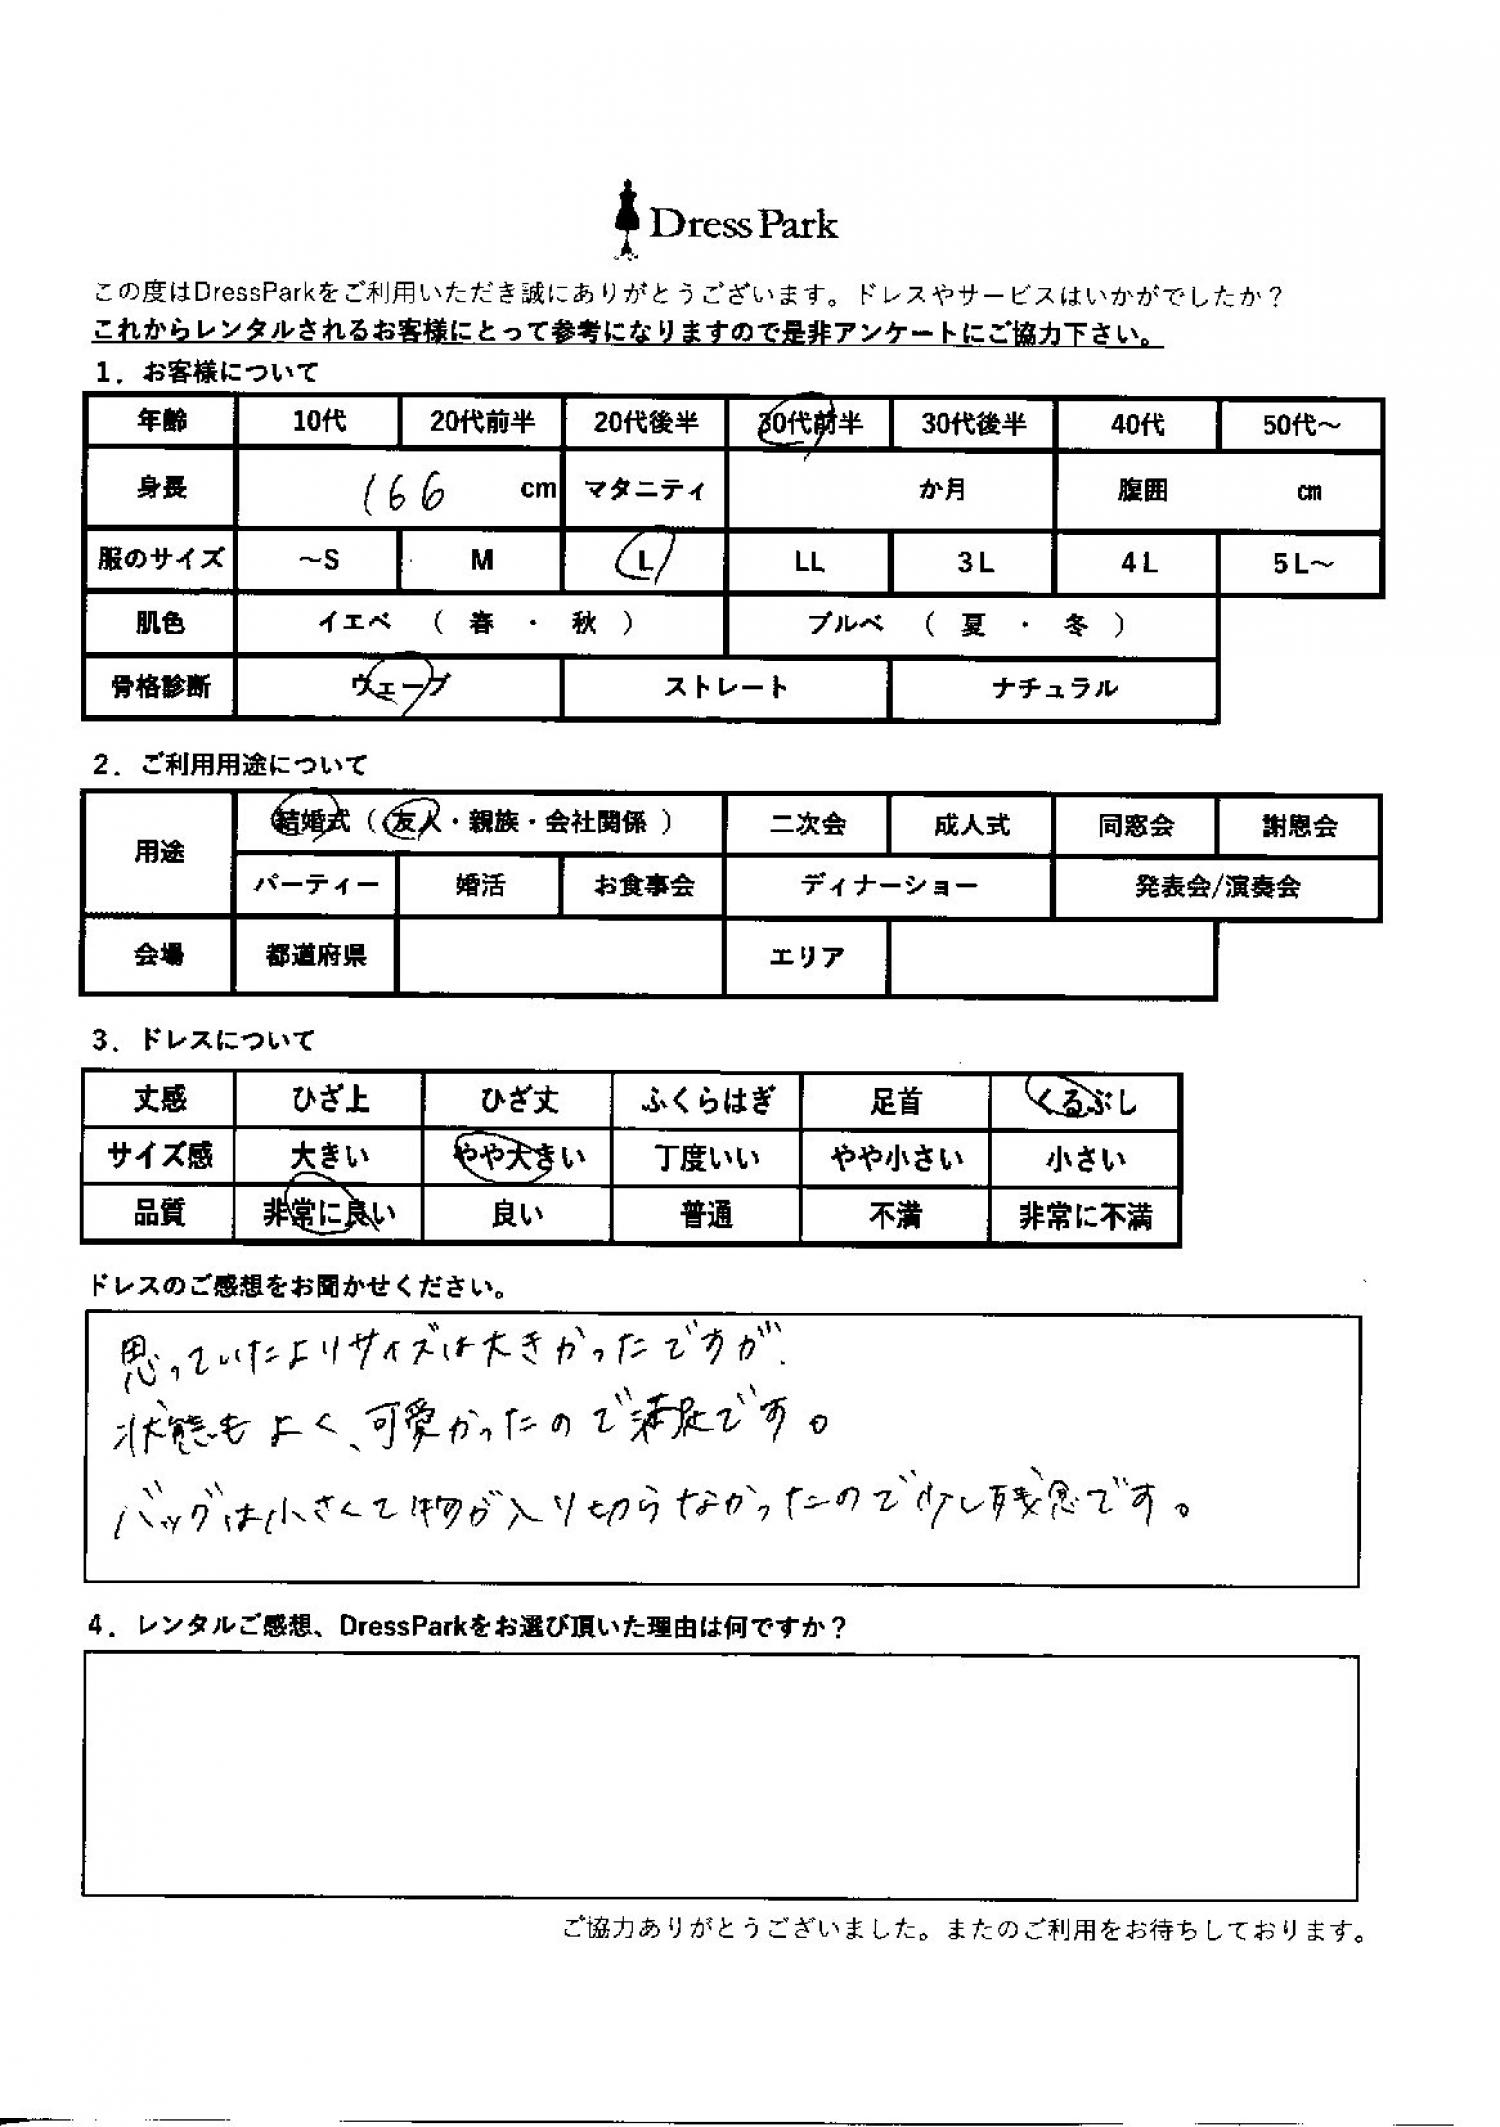 Dress Park
この度はDressParkをご利用いただき誠にありがとうございます。ドレスやサービスはいかがでしたか？
これからレンタルされるお客様にとって参考になりますので是非アンケートにご協力下さい。
1．お客様について
年齢 10代 20代前半 20代後半 30代前半 30代後半 40代 50代～
身長 166 cm マタニティ か月 腹囲 cm
服のサイズ ～S M L LL 3L 4L 5L～
肌色 イエベ （ 春 ・ 秋 ） ブルベ （ 夏 ・ 冬 ）
骨格診断 ウェーブ ストレート ナチュラル
2．ご利用用途について
用途 結婚式（ 友人・親族・会社関係 ） 二次会 成人式 同窓会 謝恩会
パーティー 婚活 お食事会 ディナーショー 発表会/演奏会
会場 都道府県 エリア
3．ドレスについて
丈感 ひざ上 ひざ丈 ふくらはぎ 足首 くるぶし
サイズ感 大きい やや大きい 丁度いい やや小さい 小さい
品質 非常に良い 良い 普通 不満 非常に不満
ドレスのご感想をお聞かせください。
思っていたよりサイズは大きかったですが、
状態もよく、可愛かったので満足です。
バッグは小さくて物が入り切らなかったので少し残念です。
4．レンタルご感想、DressParkをお選び頂いた理由は何ですか？
ご協力ありがとうございました。またのご利用をお待ちしております。